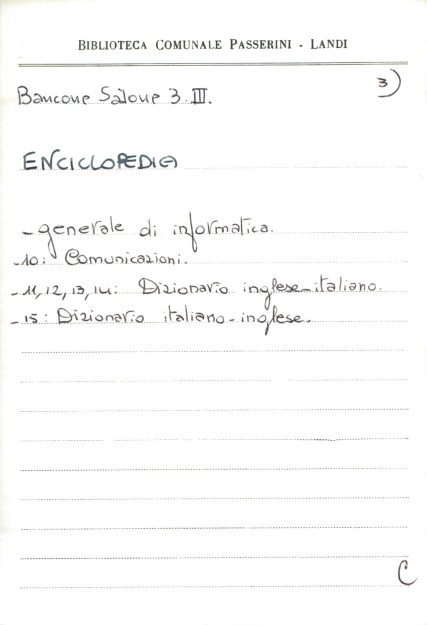 BIBLIOTECA COMUNALE PASSERINI - LANDI
3)
Bancone Salone 3. III.
ENCICLOPEDIA
- generale di informatica.
- 10: Comunicazioni.
- 11, 12, 13, 14: Dizionario inglese-italiano.
- 15: Dizionario italiano-inglese.
C